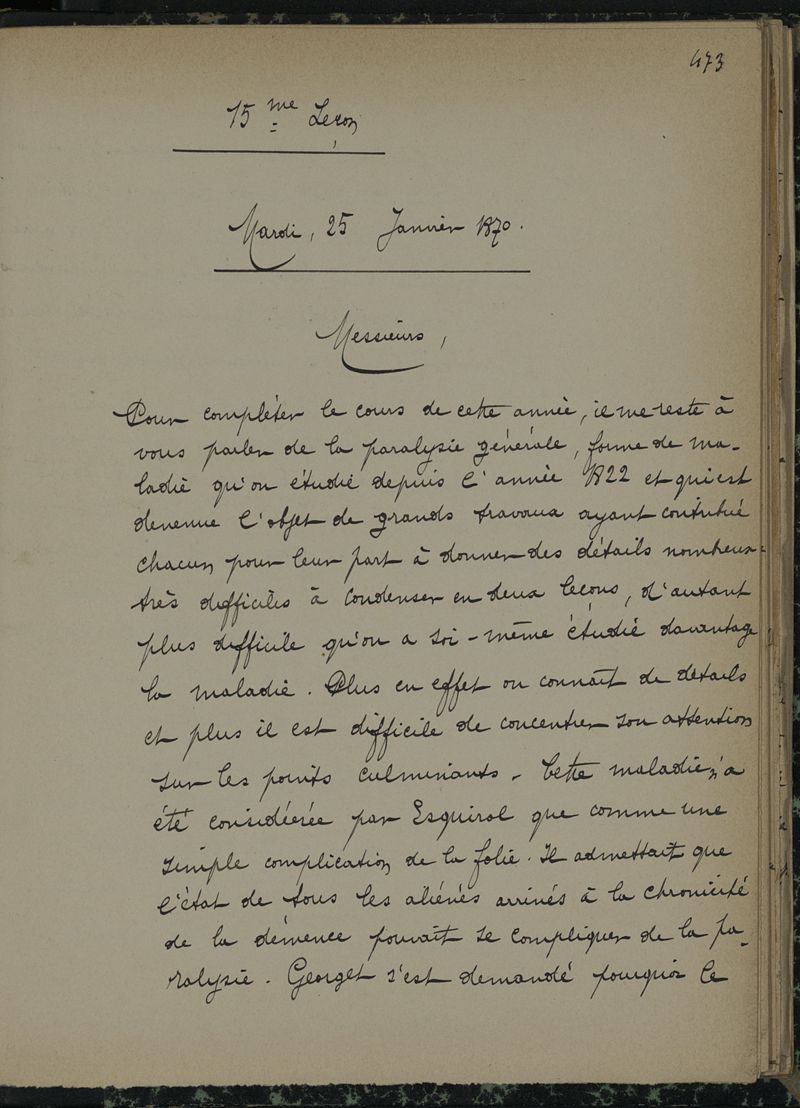 473
15me Leçon
Mardi, 25 Janvier 1870.
Messieurs,
Pour compléter le cours de cette année, il me reste à
vous parler de la paralysie générale, forme de ma-
ladie qu'on étudie depuis l'année 1822 et qui est
devenue l'objet de grands travaux ayant contribué
chacun pour leur part à donner des détails nombreux
très difficiles à condenser en deux leçons, d'autant
plus difficile qu'on a soi-même étudié davantage
la maladie. Plus en effet on connaît de détails
et plus il est difficile de concentrer son attention
sur les points culminants. Cette maladie n'a
été considérée par Esquirol que comme une
simple complication de la folie. Il admettait que
l'état de tous les aliénés arrivés à la chronicité
de la démence pouvait se compliquer de la pa-
ralysie. Georget s'est demandé pourquoi le